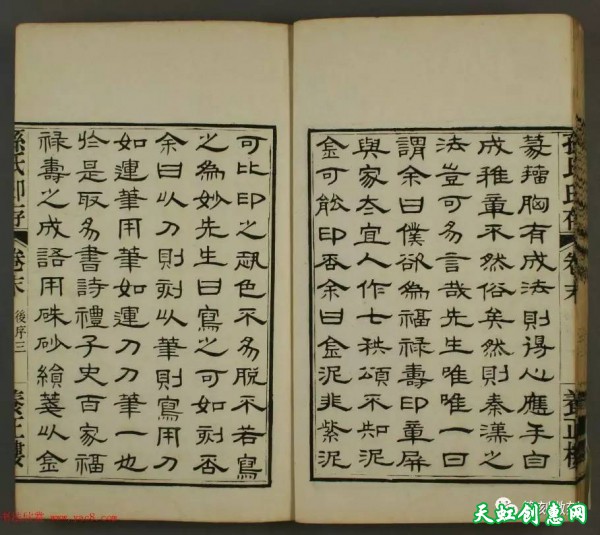 孫氏印存 卷末 養正樓
篆籀胸有成法則得心應手自
成雅章不然俗矣然則秦漢之
法豈可易言哉先生唯唯一日
謂余曰僕欲為福祿壽印章屏
與家太宜人作七秩頌不知泥
金可能印否余曰金泥非紫泥
可比印之恐色不易脫不若寫
之為妙先生曰寫之可如刻否
余曰以刀則刻以筆則寫用刀
如運筆用筆如運刀刀筆一也
於是取易書詩禮子史百家福
祿壽之成語用硃砂繪箋以金
孫氏印存 卷末 後序三 養正樓
www.yac8.com
天虹创惠网